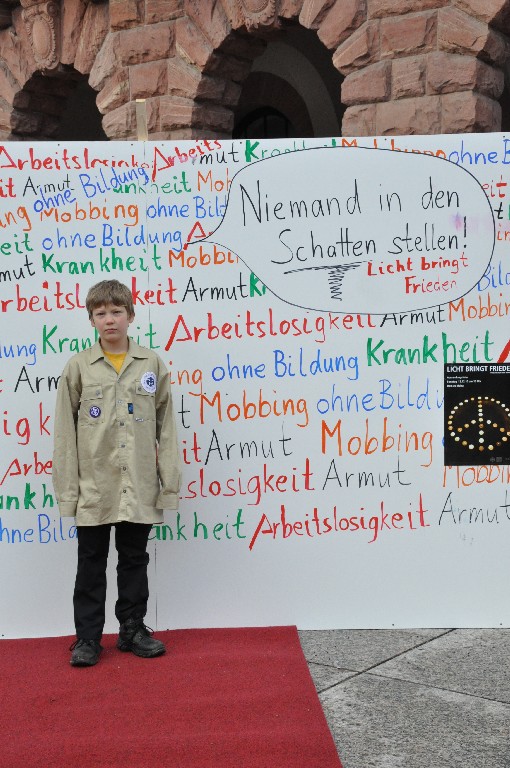 Arbeitslosigkeit Arbeits Armut Krankheit Mobbing ohne B
it Armut ohne Bildung Krankheit Mob
Niemand in den
Schatten stellen!
Licht bringt
Frieden
ing Mobbing ohne Bild
eit ohne Bildung A
mut Krankheit Mobbing
rbeitslosigkeit Armut K Armut Mobbing
Arbeitslosigkeit
dung Kra ohne Bildung Krankheit A
Arm ing
LICHT BRINGT FRIEDE
Mobbing ohne Bildu
igk it Armut Mobbing
Arb slosigkeit Armut Mobbing
Krank
hne Bildun ankheit Arbeitslosigkeit Armut